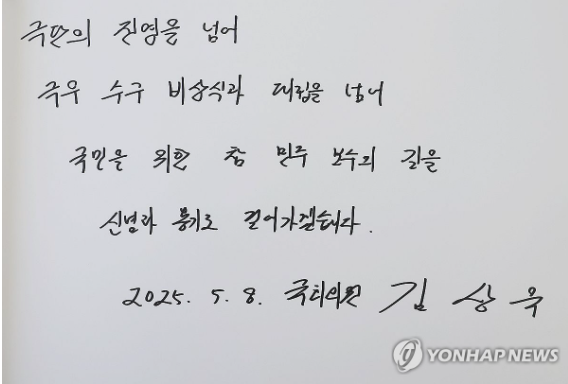 극단의 진영을 넘어
극우 수구 비상식과 대립을 넘어
국민을 위한 참 민주 보수의 길을
신념과 용기로 걸어가겠습니다.
2025. 5. 8. 국회의원 김상욱
YONHAPNEWS